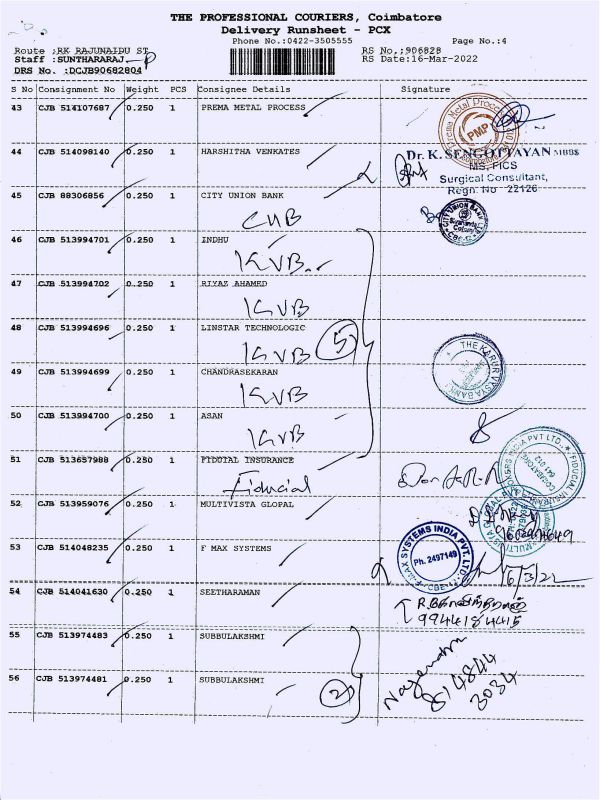 THE PROFESSIONAL COURIERS, Coimbatore
Delivery Runsheet - PCX
Phone No.:0422-3505555 Page No.:4
Route :RK RAJUNAIDU ST RS No.:906828
Staff :SUNTHARARAJ RS Date:16-Mar-2022
DRS No. :DCJB90682804
S No Consignment No Weight PCS Consignee Details Signature
43 CJB 514107687 0.250 1 PREMA METAL PROCESS
PMP
44 CJB 514098140 0.250 1 HARSHITHA VENKATES
Dr. K. SENGOTTAYAN MBBS
MS, FICS
Surgical Consultant,
Regn. No 22126
45 CJB 88306856 0.250 1 CITY UNION BANK
CUB
CITY UNION BANK
46 CJB 513994701 0.250 1 INDHU
KVB
47 CJB 513994702 0.250 1 RIYAZ AHAMED
KVB
48 CJB 513994696 0.250 1 LINSTAR TECHNOLOGIC
KVB 5
THE KARUR VYSYA BANK
49 CJB 513994699 0.250 1 CHANDRASEKARAN
KVB
50 CJB 513994700 0.250 1 ASAN
KVB
51 CJB 513657988 0.250 1 FIDUIAL INSURANCE
Fiducial
COIMBATORE
641 012
52 CJB 513959076 0.250 1 MULTIVISTA GLOPAL
53 CJB 514048235 0.250 1 F MAX SYSTEMS
F-MAX SYSTEMS INDIA PVT. LTD.
Ph. 2497149
CBE
16/3/22
54 CJB 514041630 0.250 1 SEETHARAMAN
9944184415
55 CJB 513974483 0.250 1 SUBBULAKSHMI
56 CJB 513974481 0.250 1 SUBBULAKSHMI
2
Nagendra
814844
3034